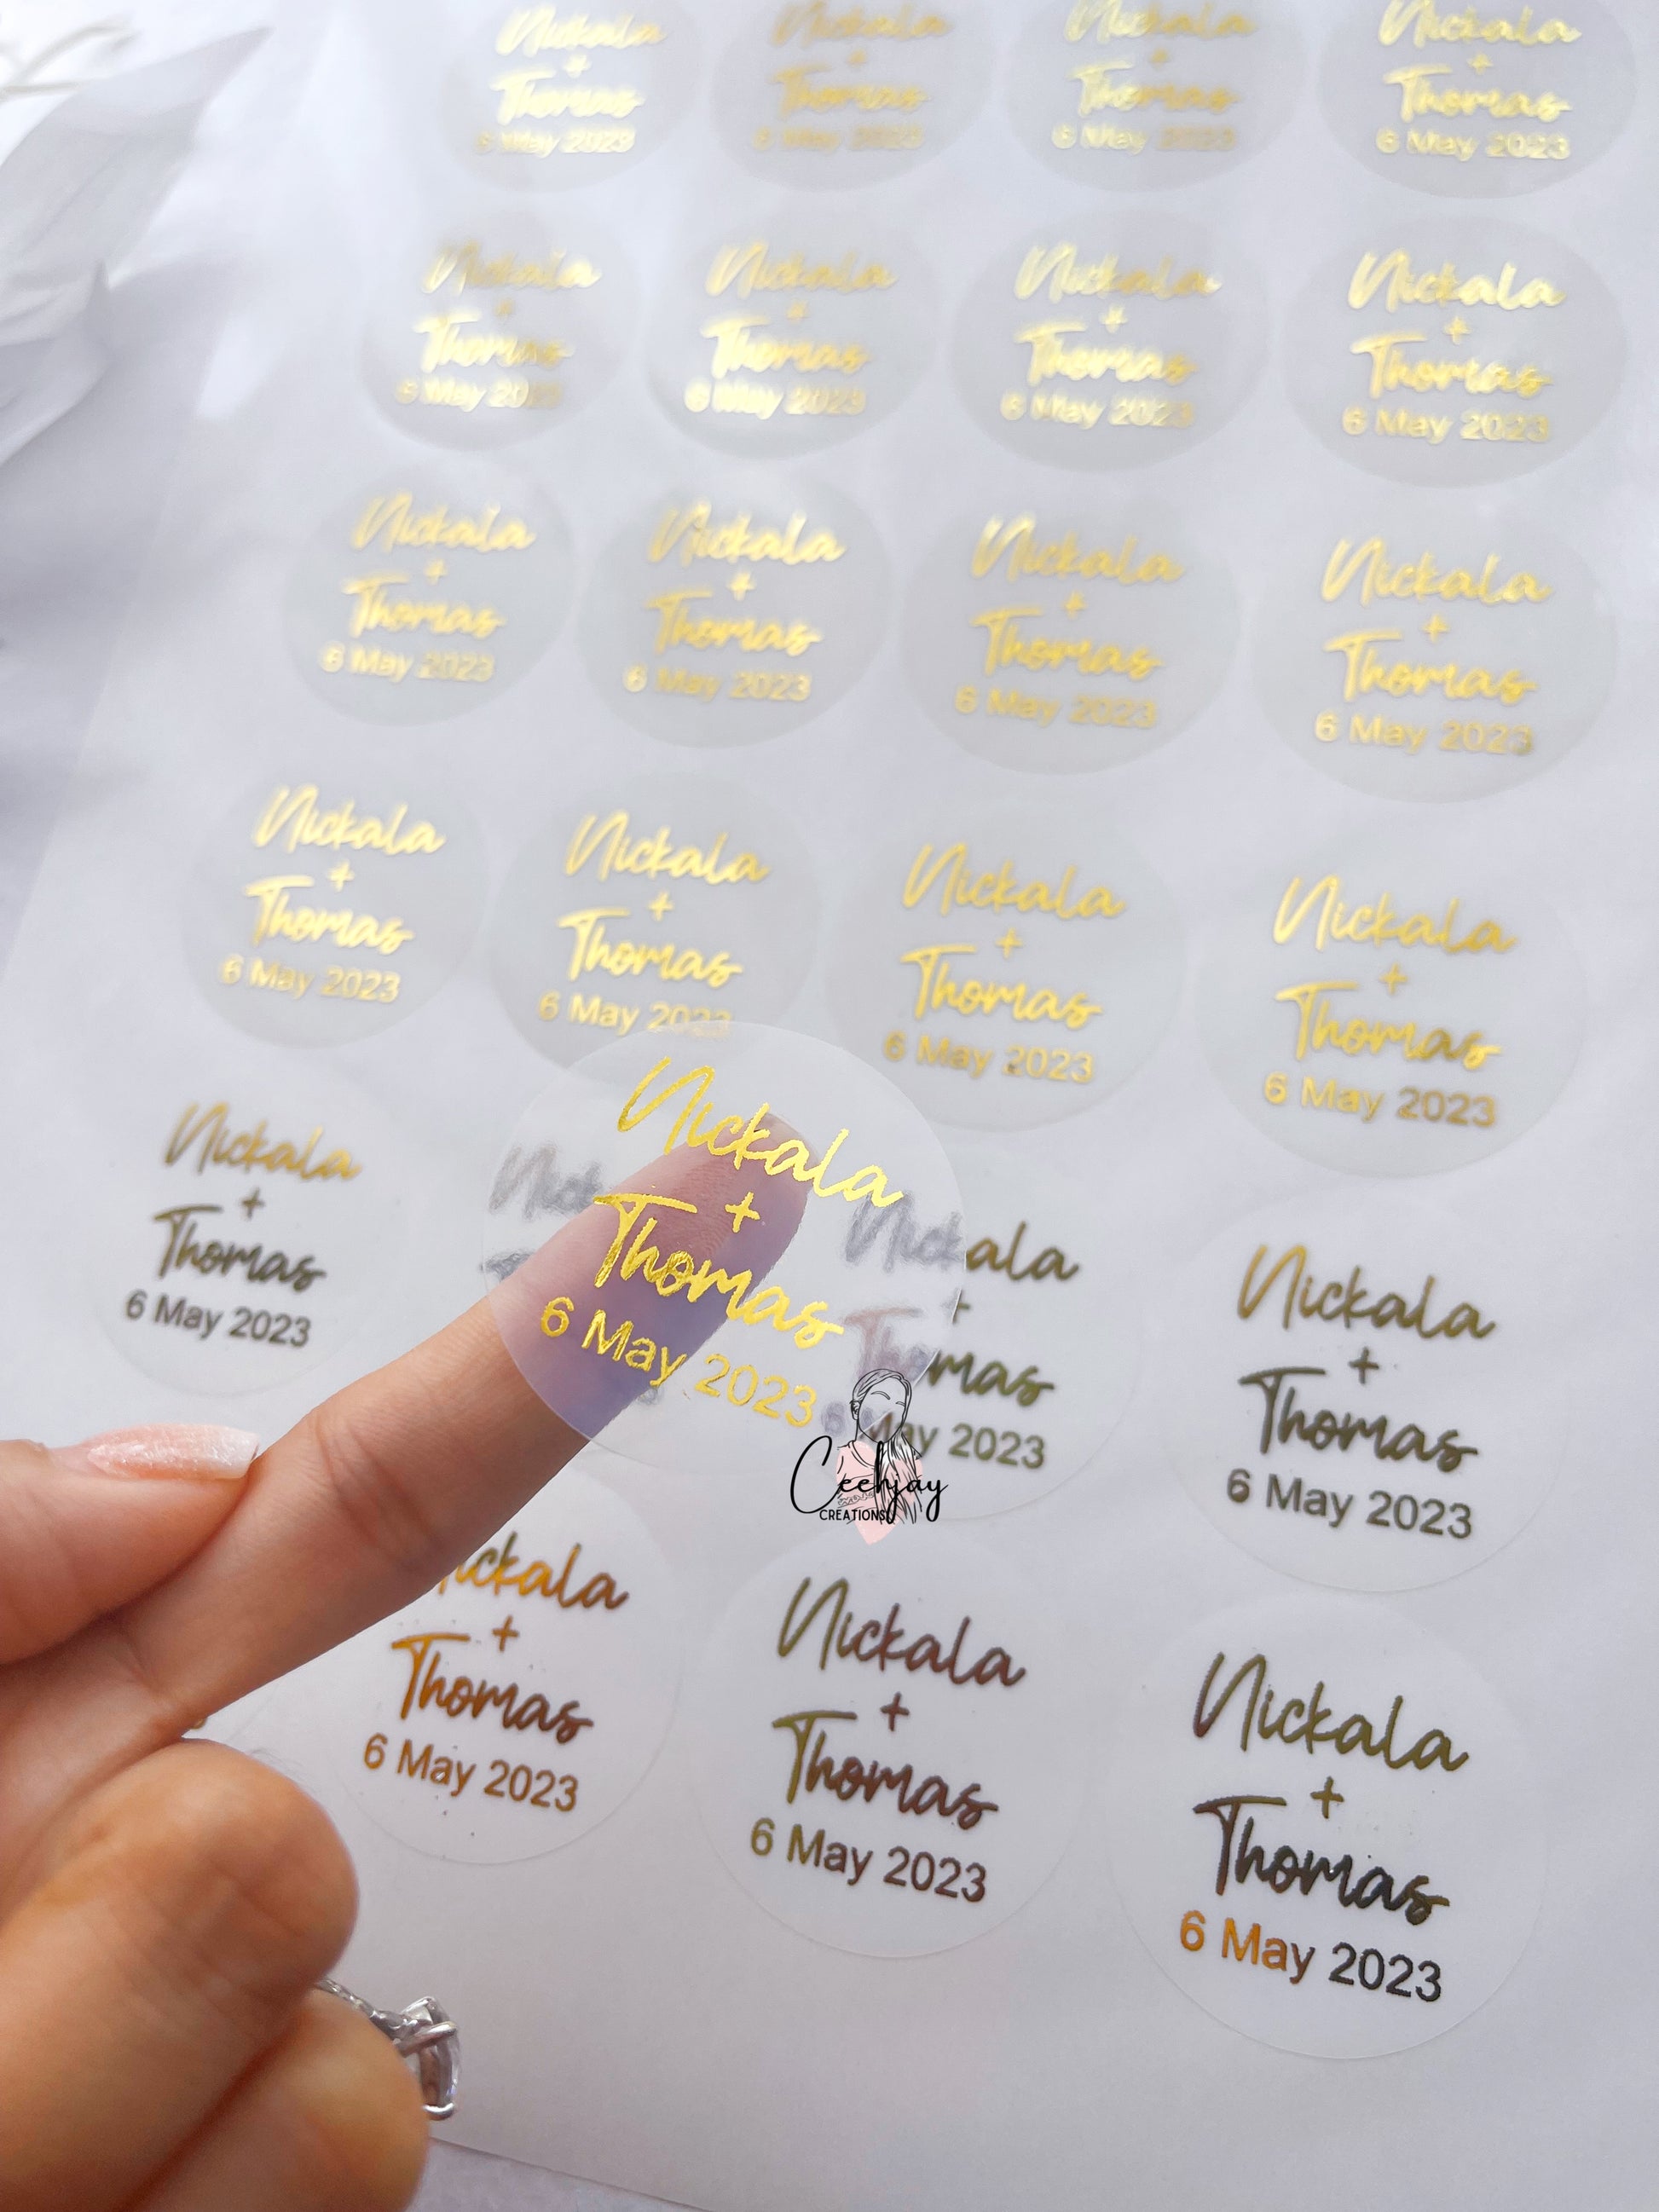 Nickala
+
Thomas
6 May 2023
Nickala
+
Thomas
6 May 2023
Nickala
+
Thomas
6 May 2023
Nickala
+
Thomas
6 May 2023
Nickala
+
Thomas
6 May 2023
Nickala
+
Thomas
6 May 2023
Nickala
+
Thomas
6 May 2023
Nickala
+
Thomas
6 May 2023
Nickala
+
Thomas
6 May 2023
Nickala
+
Thomas
6 May 2023
Nickala
+
Thomas
6 May 2023
Nickala
+
Thomas
6 May 2023
Nickala
+
Thomas
6 May 2023
Nickala
+
Thomas
6 May 2023
Nickala
+
Thomas
6 May 2023
Nickala
+
Thomas
6 May 2023
Nickala
+
Thomas
6 May 2023
Nickala
+
Thomas
6 May 2023
Nickala
+
Thomas
May 2023
Nickala
+
Thomas
6 May 2023
Ceehjay
CREATIONS
ickala
+
Thomas
6 May 2023
Nickala
+
Thomas
6 May 2023
Nickala
+
Thomas
6 May 2023